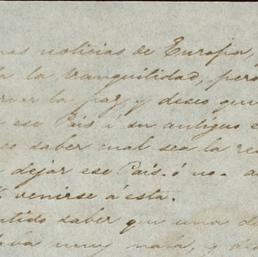 nas noticias de Europa,
a la tranquilidad, pero
rvar la paz, y deseo que
ese Pais á su antiguo
eo saber cual sea la re
dejar ese Pais. ó no. a
venirse á ésta.
ntido saber que una de
aba muy mala, y